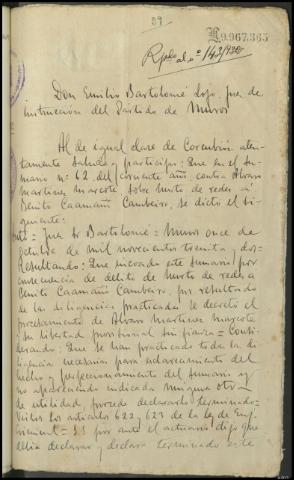 39
9.967.365
Don Emilio Bartolomé Lojo, juez de
instrucción del Partido de Muros
Al de igual clase de Corcubión aten-
tamente saludo y participo: Que en el su-
mario nº 62 del corriente año, contra Alvaro
Martinez Marcote sobre hurto de redes a
Benito Caamaño Cambeiro, se dictó el si-
guiente:
= Juez Sr Bartolomé = Muros once de
octubre de mil novecientos treinta y dos=
Resultando: Que incoado este sumario por
consecuencia de delito de hurto de redes a
Benito Caamaño Cambeiro, por resultado
de las diligencias practicadas se decretó el
procesamiento de Alvaro Martinez Marcote
su libertad provisional sin fianza = Consi-
derando: Que se han practicado toda la di-
ligencia necesarias para esclarecimiento del
hecho y perfeccionamiento del sumario y
no apareciendo indicada ninguna otra
de utilidad, procede declararlo terminado=
Vistos los articulos 622, 623 de la ley de Enj.
= SS por ante el actuario dijo que
debia declarar y declara terminado este